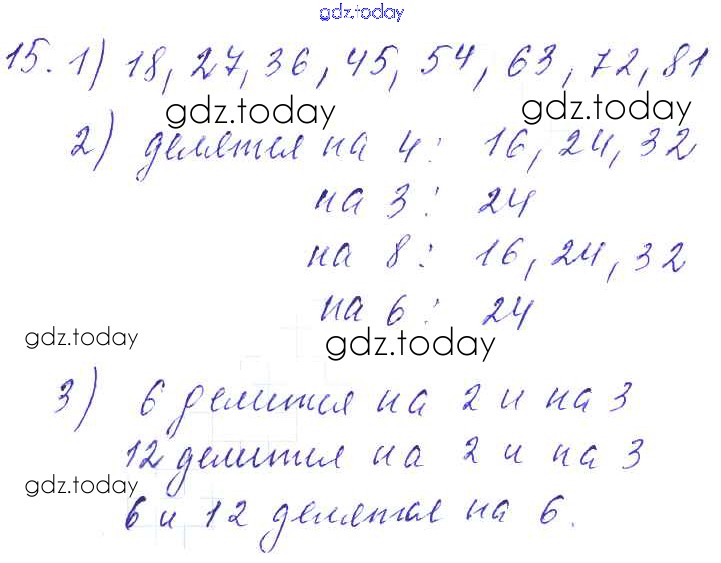 gdz.today
15. 1) 18, 27, 36, 45, 54, 63, 72, 81
gdz.today gdz.today
2) делятся на 4: 16, 24, 32
на 3: 24
на 8: 16, 24, 32
на 6: 24
gdz.today gdz.today
3) 6 делится на 2 и на 3
12 делится на 2 и на 3
gdz.today
6 и 12 делятся на 6.